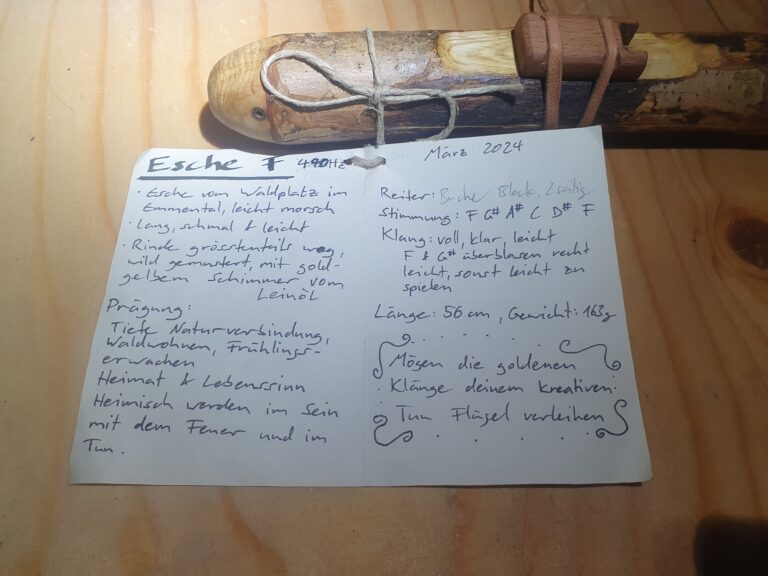 Esche F 440Hz
· Esche vom Waldplatz im
Emmental, leicht morsch
· Lang, schmal & leicht
· Rinde grösstenteils weg,
wild gemustert, mit gold-
gelbem Schimmer vom
Leinöl
Prägung:
Tiefe Naturverbindung,
Waldwohnen, Frühlings-
erwachen
Heimat & Lebenssinn
Heimisch werden im Sein
mit dem Feuer und im
Tun.
März 2024
Reiter: Buche Block, 2seitig
Stimmung: F G# A# C D# F
Klang: voll, klar, leicht
F & G# überblasen recht
leicht, sonst leicht zu
spielen
Länge: 56 cm, Gewicht: 163g
Mögen die goldenen
Klänge deinem kreativen
Tun Flügel verleihen